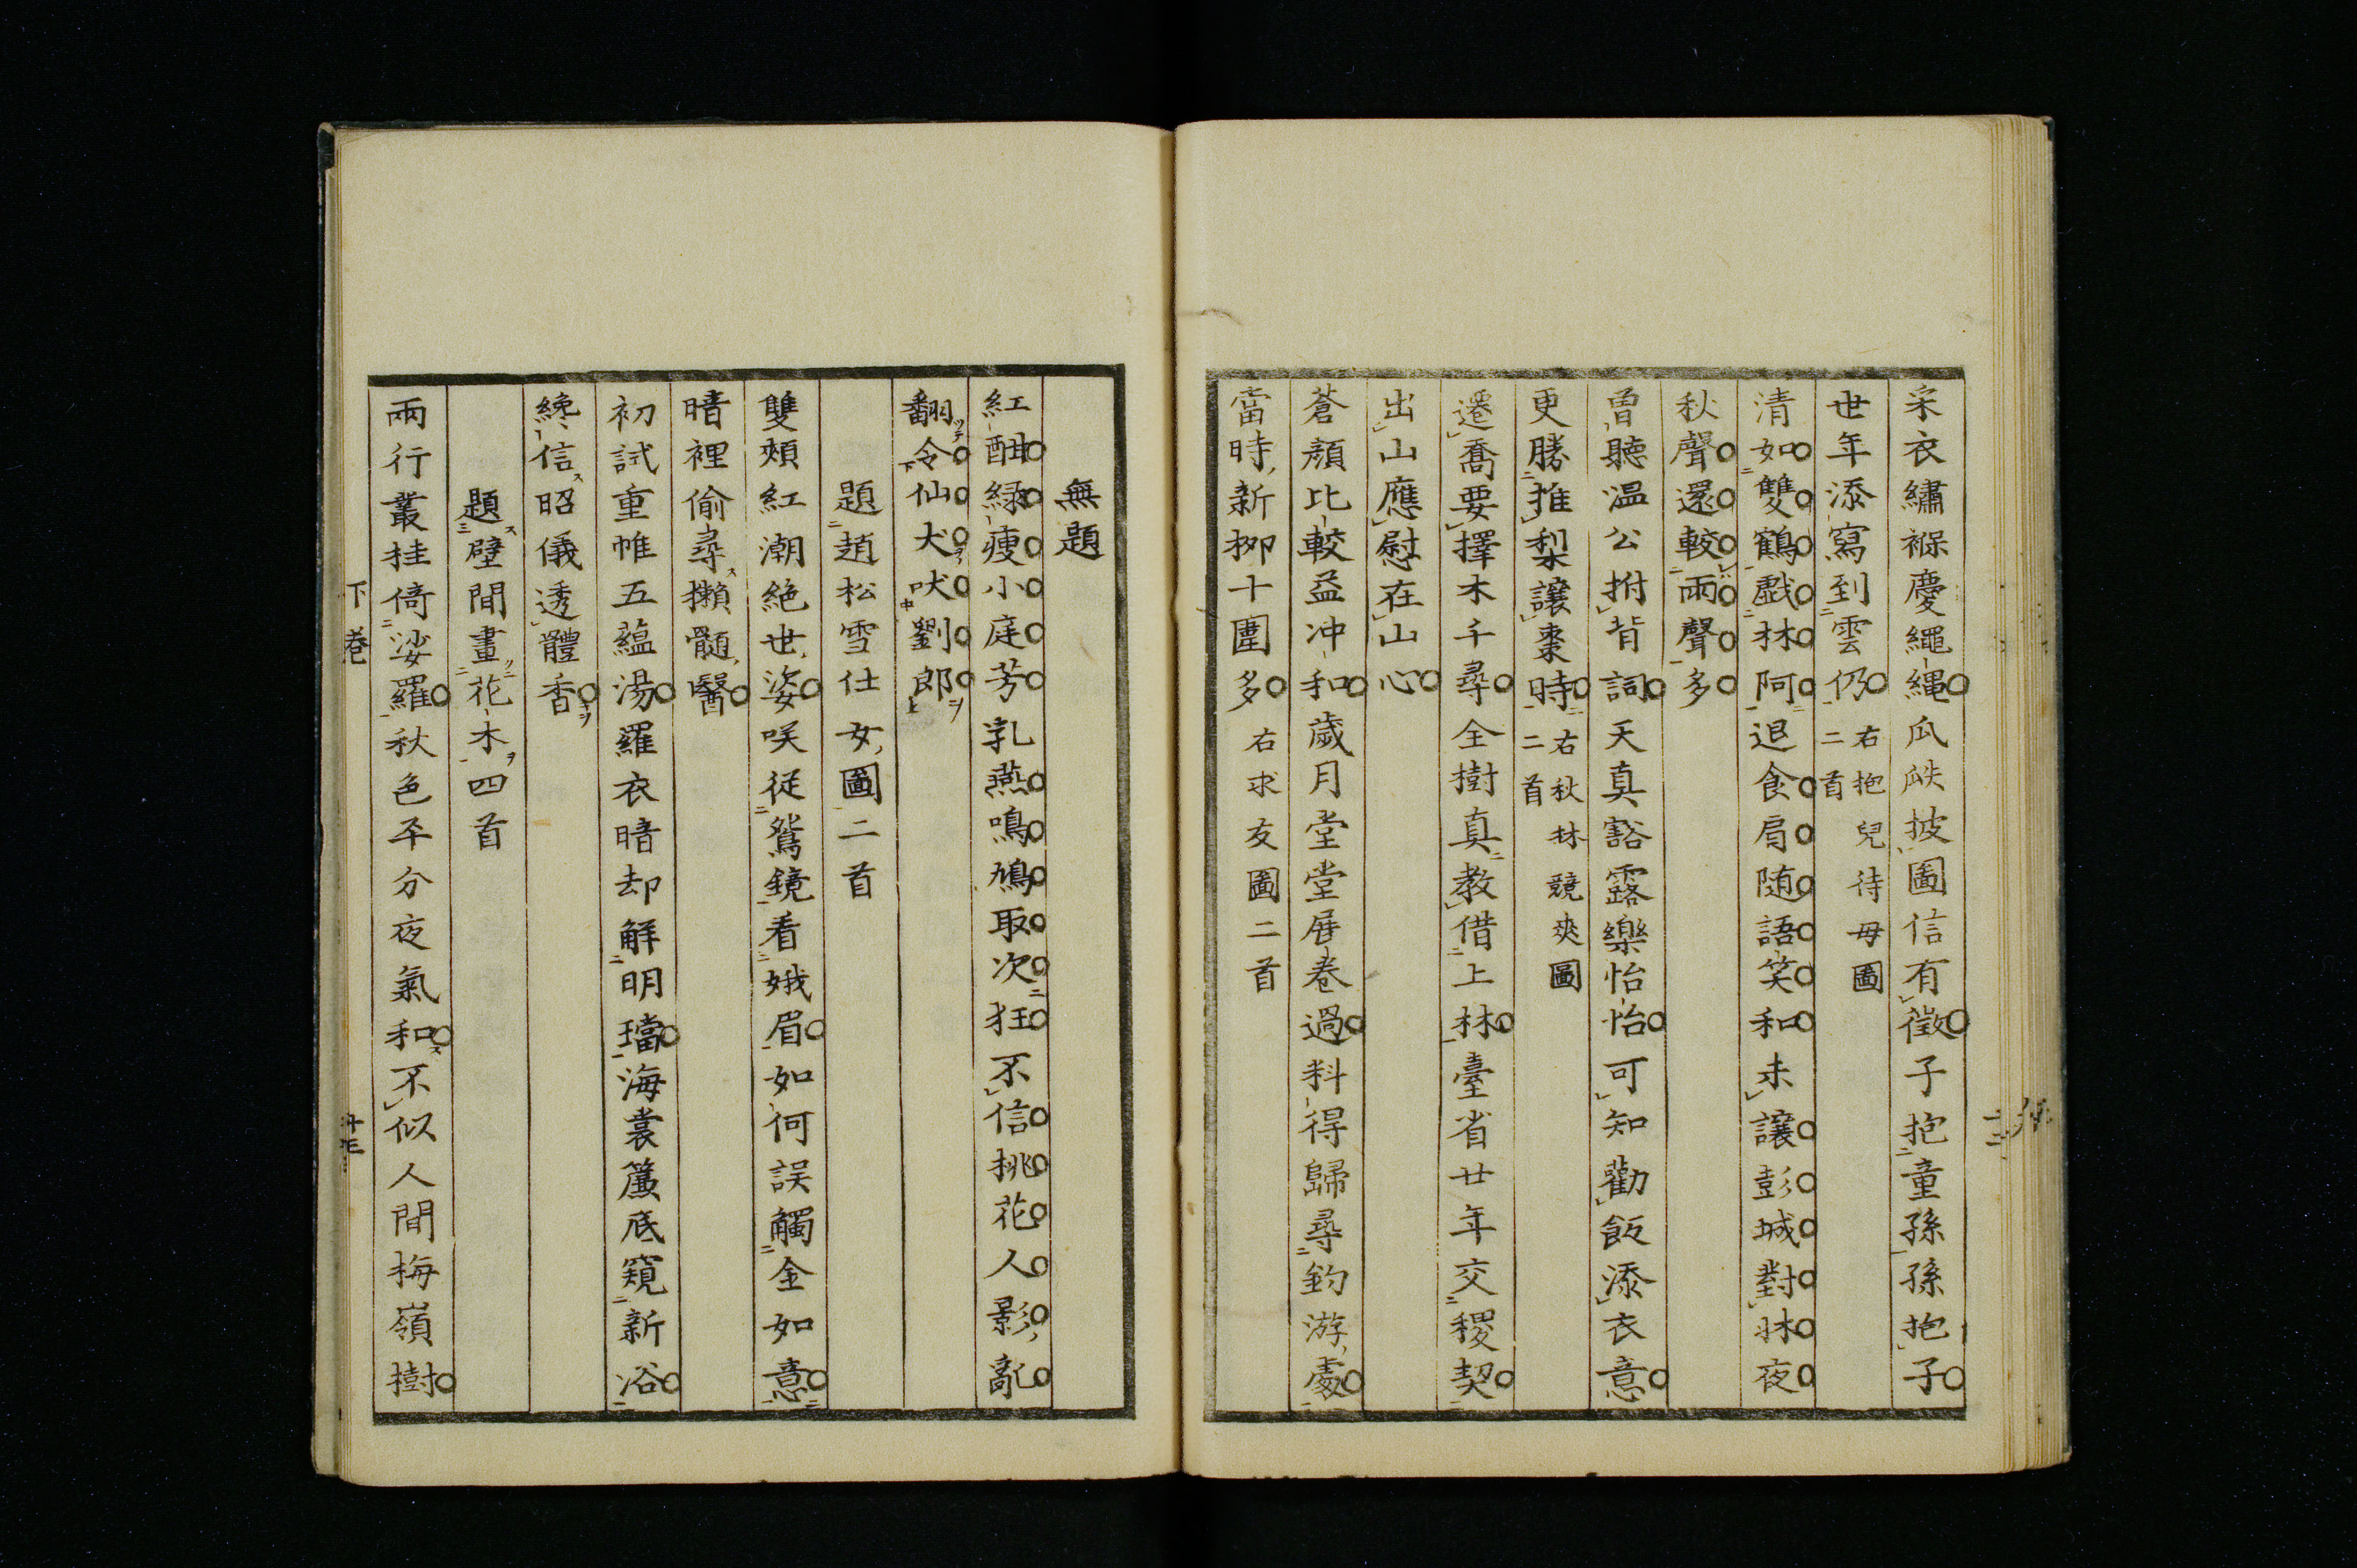 采衣繡褓慶繩繩瓜瓞披圖信有徵子抱童孫孫抱子
世年添寫到雲仍右抱兒待母圖二首
清如雙鶴戲林阿退食肩随語笑和未讓彭城對牀夜
秋聲還較兩聲多
曾聽温公拊背詞天真豁露樂怡怡可知勸飯添衣意
更勝推梨讓棗時右秋林競爽圖二首
遷喬要擇木千尋全樹真教借上林臺省廿年交稷契
出山應慰在山心
蒼顏比較益冲和歲月堂堂展卷過料得歸尋釣游處
當時新栁十圍多右求友圖二首
無題
紅酣緑瘦小庭芳乳燕鳴鳩取次狂不信挑花人影亂
翻令仙犬吠劉郎
題趙松雪仕女圖二首
雙頰紅潮絶世姿咲從鴛鏡看娥眉如何誤觸金如意
暗裡偷尋獺髓醫
初試重帷五藴湯羅衣暗却解明璫海裳簾底窺新浴
纔信昭儀透體香
題壁間畫花木四首
兩行叢桂倚娑羅秋色平分夜氣和不似人間梅嶺樹
下卷